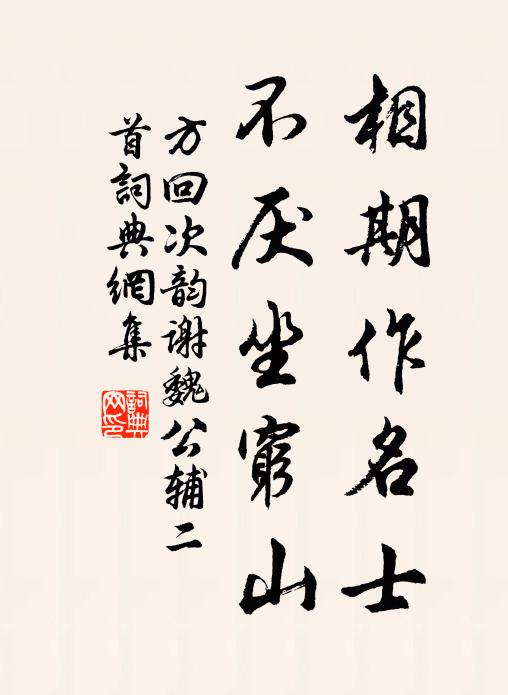 相期作名士
不厌坐窮山
方回次韵谢魏公辅二
首詞典網集
詞典网印